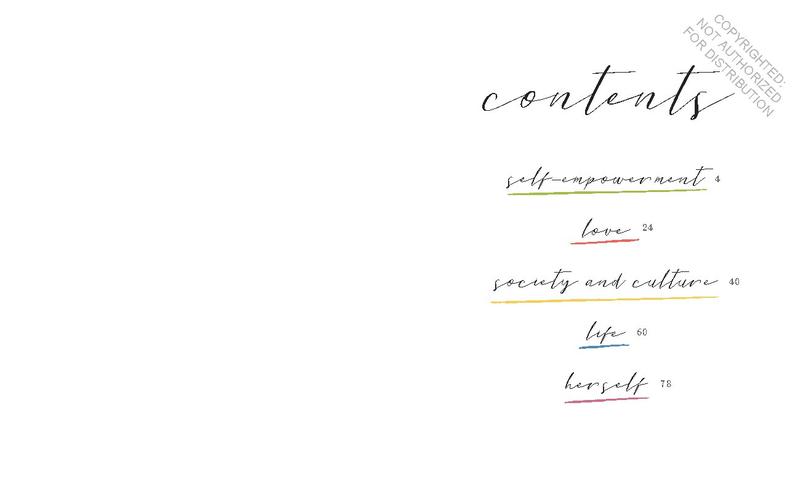 COPYRIGHTED:
NOT AUTHORIZED
FOR DISTRIBUTION
contents
self-empowerment 4
love 24
society and culture 40
life 60
herself 78